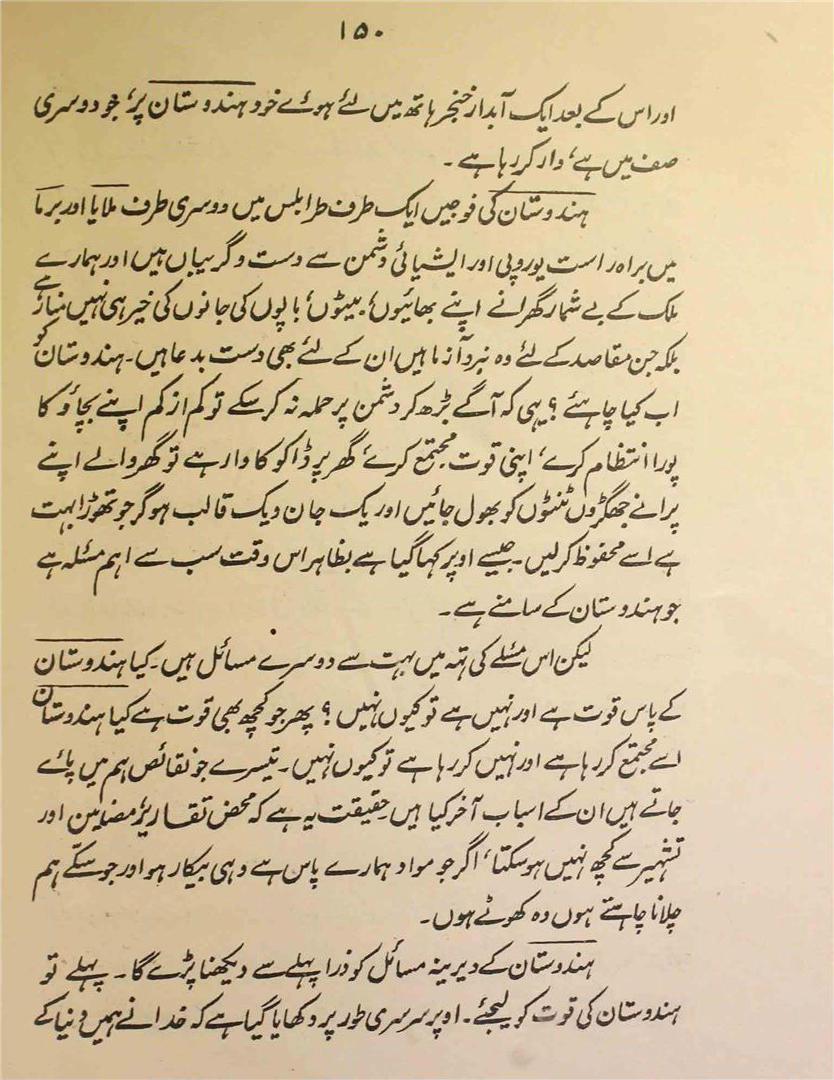 ۱۵۰
اور اس کے بعد ایک آبدار خنجر ہاتھ میں لئے ہوئے خود ہندوستان پر، جو دوسری
صف میں ہے، وار کر رہا ہے۔
ہندوستان کی فوجیں ایک طرف طرابلس میں دوسری طرف ملایا اور برما
میں براہ راست یوروپی اور ایشیائی دشمن سے دست و گریباں ہیں اور ہمارے
ملک کے بے شمار گھرانے اپنے بھائیوں، بیٹوں، باپوں کی جانوں کی خیر ہی نہیں منا رہے
بلکہ جن مقاصد کے لئے وہ نبرد آزما ہیں ان کے لئے بھی دست بدعا ہیں۔ ہندوستان کو
اب کیا چاہئے ؟ یہی کہ آگے بڑھ کر دشمن پر حملہ نہ کر سکے تو کم از کم اپنے بچاؤ کا
پورا انتظام کرے، اپنی قوت مجتمع کرے، گھر پر ڈاکو کا وار ہے تو گھر والے اپنے
پرانے جھگڑوں ٹنٹوں کو بھول جائیں اور یک جان و یک قالب ہو کر جو تھوڑا بہت
ہے اسے محفوظ کر لیں۔ جیسے اوپر کہا گیا ہے بظاہر اس وقت سب سے اہم مسئلہ ہے
جو ہندوستان کے سامنے ہے۔
لیکن اس مسئلے کی تہ میں بہت سے دوسرے مسائل ہیں۔ کیا ہندوستان
کے پاس قوت ہے اور نہیں ہے تو کیوں نہیں ؟ پھر جو کچھ بھی قوت ہے کیا ہندوستان
اسے مجتمع کر رہا ہے اور نہیں کر رہا ہے تو کیوں نہیں۔ تیسرے جو نقائص ہم میں پائے
جاتے ہیں ان کے اسباب آخر کیا ہیں۔ حقیقت یہ ہے کہ محض تقاریر، مضامین اور
تشہیر سے کچھ نہیں ہو سکتا، اگر جو مواد ہمارے پاس ہے وہی بیکار ہو اور جو سکے ہم
چلانا چاہتے ہوں وہ کھوٹے ہوں۔
ہندوستان کے دیرینہ مسائل کو ذرا پہلے سے دیکھنا پڑے گا۔ پہلے تو
ہندوستان کی قوت کو لیجئے۔ اوپر سرسری طور پر دکھایا گیا ہے کہ خدا نے ہمیں دنیا کے